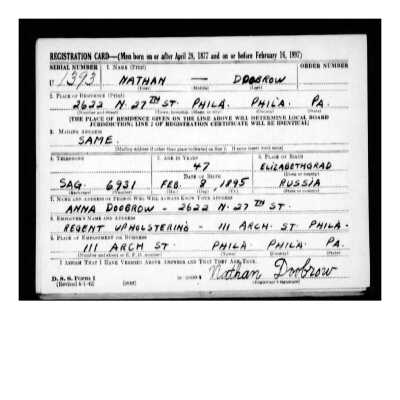 REGISTRATION CARD—(Men born on or after April 28, 1877 and on or before February 16, 1897)
SERIAL NUMBER 1. NAME (Print) ORDER NUMBER
U 1393 NATHAN — DOOBROW
(First) (Middle) (Last)
2. PLACE OF RESIDENCE (Print)
2622 N. 27TH ST. PHILA. PHILA. PA.
(Number and street) (Town, township, village, or city) (County) (State)
[THE PLACE OF RESIDENCE GIVEN ON THE LINE ABOVE WILL DETERMINE LOCAL BOARD
JURISDICTION; LINE 2 OF REGISTRATION CERTIFICATE WILL BE IDENTICAL]
3. MAILING ADDRESS
SAME.
(Mailing address if other than place indicated on line 2. If same insert word same)
4. TELEPHONE 5. AGE IN YEARS 6. PLACE OF BIRTH
47 ELIZABETHGRAD
DATE OF BIRTH (Town or county)
SAG. 6931 FEB. 8, 1895 RUSSIA
(Exchange) (Number) (Mo.) (Day) (Yr.) (State or country)
7. NAME AND ADDRESS OF PERSON WHO WILL ALWAYS KNOW YOUR ADDRESS
ANNA DOOBROW - 2622 N. 27TH ST.
8. EMPLOYER'S NAME AND ADDRESS
REGENT UPHOLSTERING - 111 ARCH. ST. PHILA.
9. PLACE OF EMPLOYMENT OR BUSINESS
111 ARCH ST. PHILA. PHILA. PA.
(Number and street or R. F. D. number) (Town) (County) (State)
I AFFIRM THAT I HAVE VERIFIED ABOVE ANSWERS AND THAT THEY ARE TRUE.
D. S. S. Form 1 Nathan Doobrow
(Revised 4-1-42) (over) (Registrant's signature)